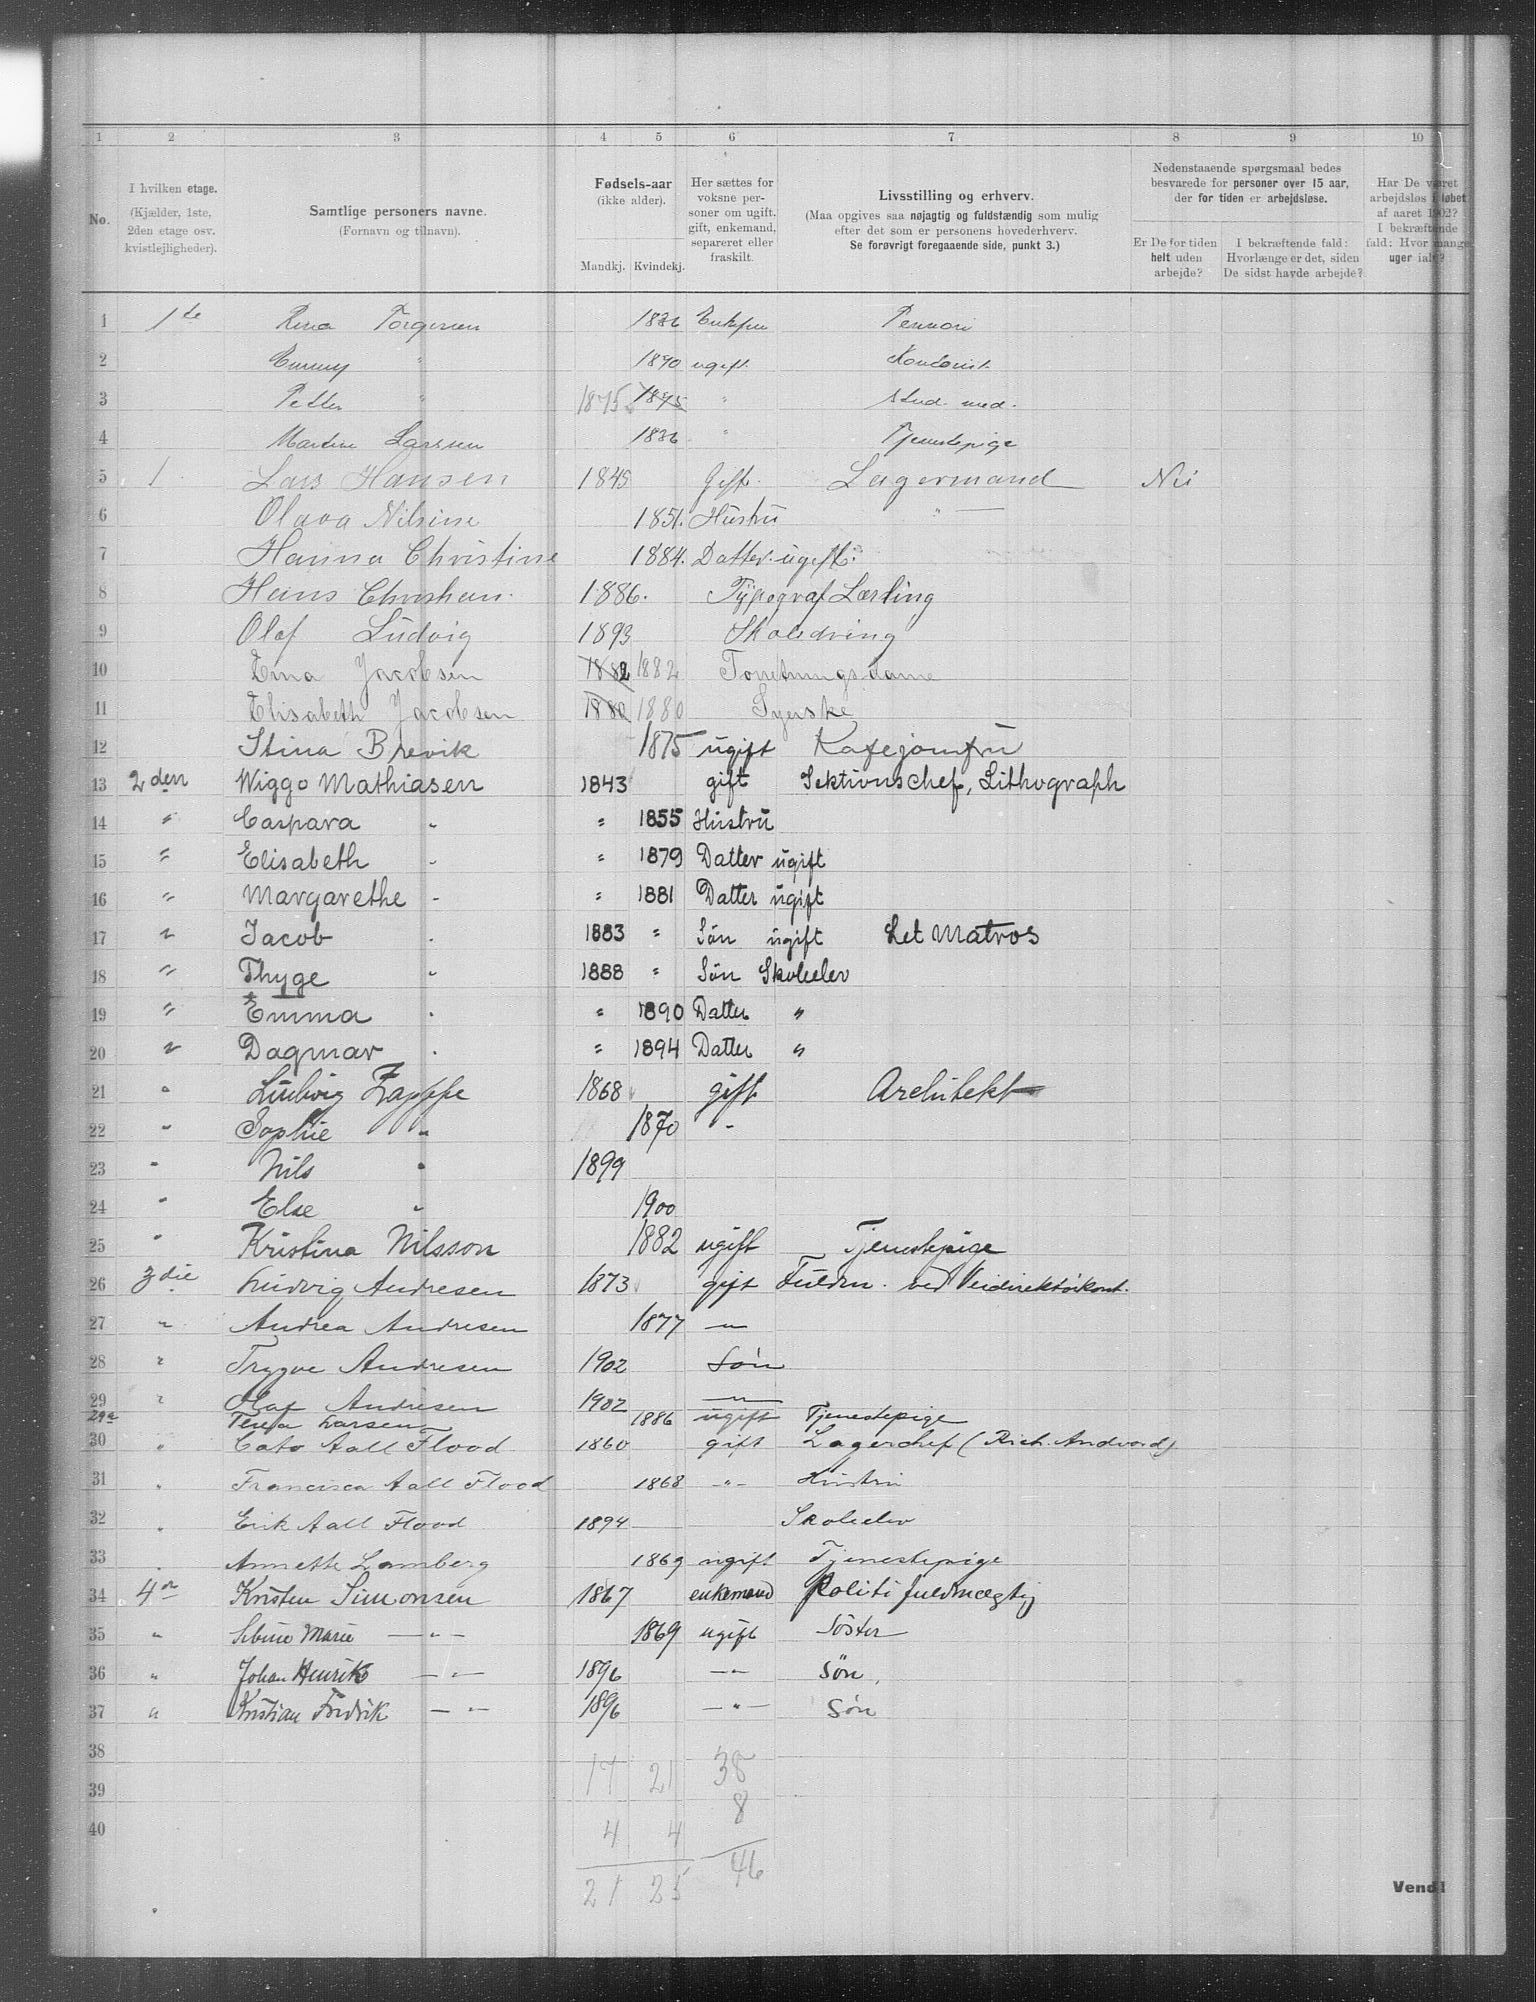 1 2 3 4 5 6 7 8 9 10
No.
I hvilken etage.
(Kjælder, 1ste,
2den etage osv.
kvistlejligheder).
Samtlige personers navne.
(Fornavn og tilnavn).
Fødsels-aar
(ikke alder).
Mandkj. Kvindekj.
Her sættes for
voksne per-
soner om ugift,
gift, enkemand,
separeret eller
fraskilt.
Livsstilling og erhverv.
(Maa opgives saa nøjagtig og fuldstændig som mulig
efter det som er personens hovederhverv.
Se forøvrigt foregaaende side, punkt 3.)
Nedenstaaende spørgsmaal bedes
besvarede for personer over 15 aar,
der for tiden er arbejdsløse.
Er De for tiden
helt uden
arbejde?
I bekræftende fald:
Hvorlænge er det, siden
De sidst havde arbejde?
Har De været
arbejdsløs i løbet
af aaret 1902?
I bekræftende
fald: Hvor mange
uger ialt?
1 1ste Torgersen 1836 Enkefru
2 Emmy " 1890 ugift
3 Petter " 1875 1875 " stud. med.
4 Martine Larssen 1836 " Tjenestepige
5 1 Lars Hansen 1845 Gift. Lagermand Nei
6 Olava Nilsine 1851. Hustru "
7 Hanna Christine 1884. Datter. ugift.
8 Hans Christian. 1886. Typograf Lærling
9 Olaf Ludvig 1893 Skoledreng
10 Erna Jacobsen 1882 1882 Forretningsdame
11 Elisabeth Jacobsen 1880 1880 Syerske
12 Stina Brevik 1875 ugift Kafejomfru
13 2den Wiggo Mathiasen 1843 gift Sektionschef, Lithograph
14 " Caspara " " 1855 Hustru
15 " Elisabeth " " 1879 Datter ugift
16 " Margarethe " " 1881 Datter ugift
17 " Jacob " 1883 " Søn ugift Let Matros
18 " Thyge " 1888 " Søn Skoleelev
19 " Emma " " 1890 Datter "
20 " Dagmar " " 1894 Datter "
21 " Ludvig Zappfe 1868 gift Architekt
22 " Sophie " 1870 "
23 " Nils " 1899
24 " Else " 1900
25 " Kristina Nilsson 1882 ugift Tjenestepige
26 3die Ludvig Andresen 1873 gift Fuldm. ved Veidirektørkont.
27 " Andrea Andresen 1877 "
28 " Trygve Andresen 1902 Søn
29 " Olaf Andresen 1902 "
29a Larsen 1886 ugift Tjenestepige
30 " Cato Aall Flood 1860 gift Lagerchef (Rich. Andvord)
31 " Francisca Aall Flood 1868 " Hustru
32 " Erik Aall Flood 1894 Skoleelev
33 " Annette Lamberg 1869 ugift Tjenestepige
34 4de Kristen Simonsen 1867 enkemand Politifuldmægtig
35 " Marie — " — 1869 ugift Søster
36 " Johan Henrik — " — 1896 — " — Søn.
37 " Kristian Fredrik — " — 1896 — " — Søn
38 17 21 38
39 8
40 4 4
21 25 46
Vend!